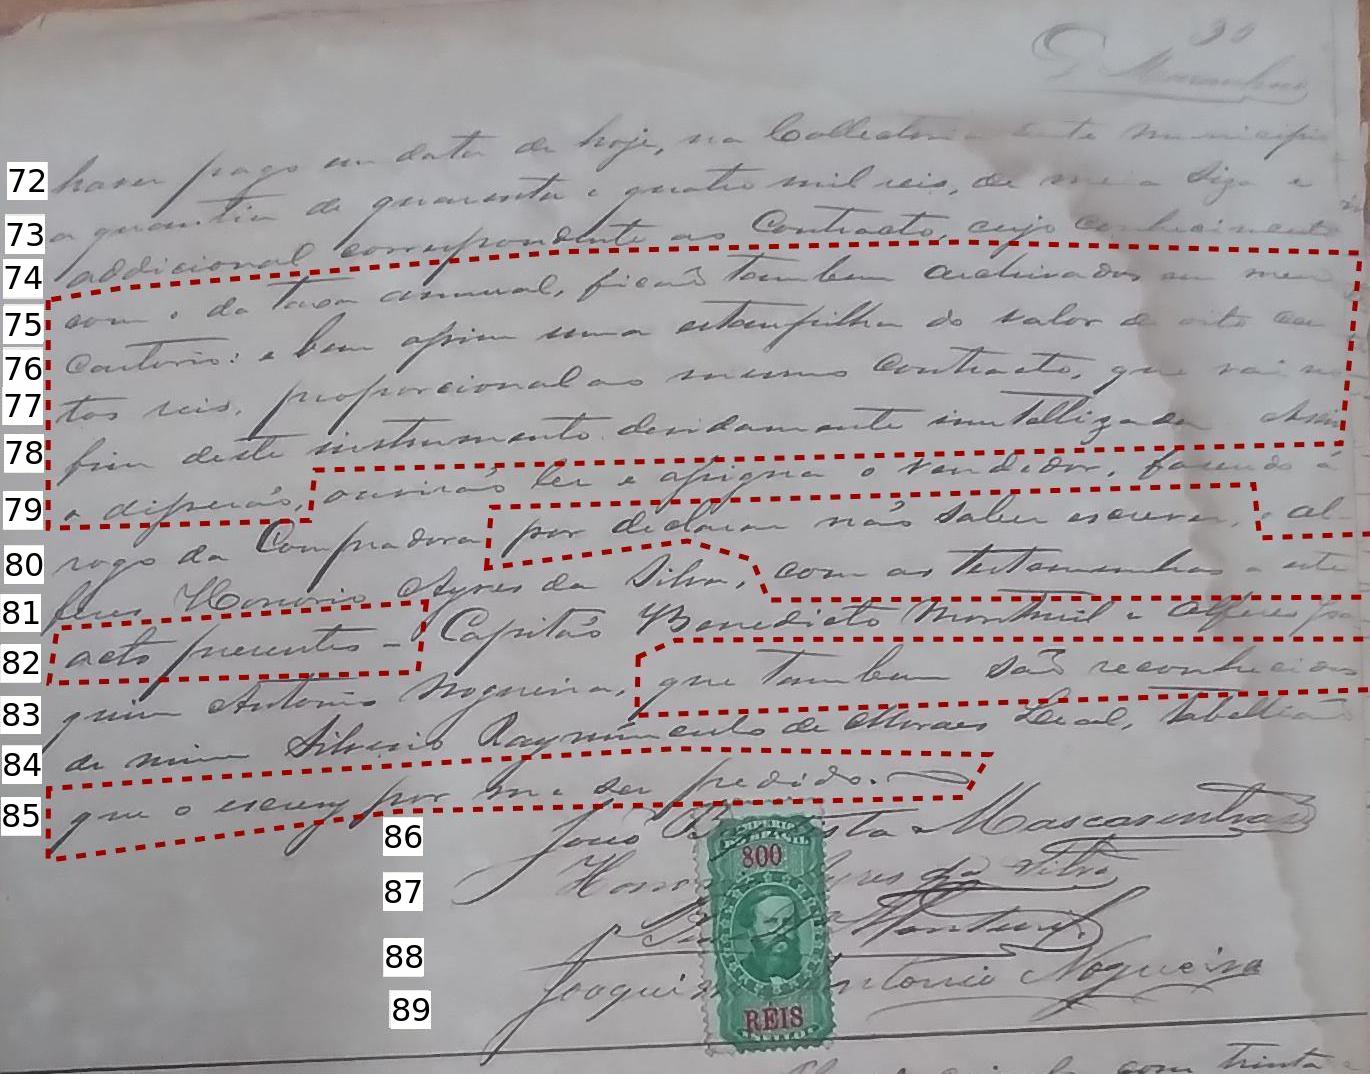 30
72 haver pago em data de hoje, na Collectoria deste municipio
73 a quantia de quarenta e quatro mil reis, de meia siza e
74 addicional correspondente ao Contracto, cujo conhecimento
75 com o da taxa annual, ficaõ tambem archivados em meu
76 Cartorio: e bem assim uma estampilha do valor de oito cen
77 tos reis, proporcional ao mesmo contracto, que vai no
78 fim deste instrumento devidamente inutillizada. Assim
79 o disseraõ, ouviraõ ler e assigna o vendedor, fasendo á
80 rogo da Compradora por declarar não saber escrever, o al-
81 feres Honorio Ayres da Silva, com as testemunhas a este
82 acto presentes - Capitaõ Benedicto Monteiro e Alferes Joa
83 quim Antonio Nogueira, que tambem saõ reconhecidos
84 de mim Silverio Raymundo de Moraes Leal, Tabelliaõ
85 que o escrevy por me ser pedido.
86 João Baptista Mascarenhas
87 Honorio Ayres da Silva
88 Monteiro
89 Joaquim Antonio Nogueira
800
REIS
com trinta